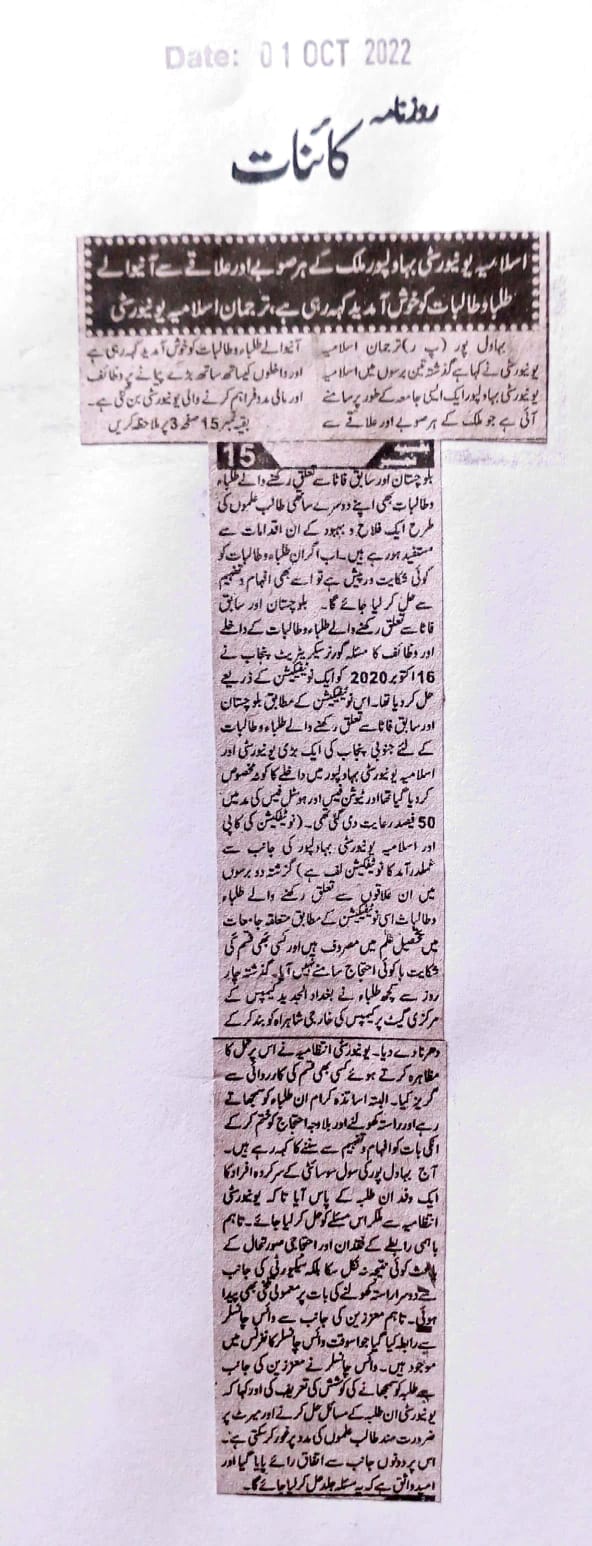 Date: 01 OCT 2022
روزنامہ
کائنات
اسلامیہ یونیورسٹی بہاولپور ملک کے ہر صوبے اور علاقے سے آنیوالے
طلبا و طالبات کو خوش آمدید کہہ رہی ہے، ترجمان اسلامیہ یونیورسٹی
بہاول پور (پ ر) ترجمان اسلامیہ
یونیورسٹی نے کہا ہے گذشتہ تین برسوں میں اسلامیہ
یونیورسٹی بہاولپور ایک ایسی جامعہ کے طور پر سامنے
آئی ہے جو ملک کے ہر صوبے اور علاقے سے
آنیوالے طلباء و طالبات کو خوش آمدید کہہ رہی ہے
اور داخلوں کیساتھ ساتھ بڑے پیمانے پر وظائف
اور مالی مدد فراہم کرنے والی یونیورسٹی بن گئی ہے۔
بقیہ نمبر 15 صفحہ 3 پر ملاحظہ کریں
15
بلوچستان اور سابق فاٹا سے تعلق رکھنے والے طلباء
و طالبات بھی اپنے دوسرے ساتھی طالب علموں کی
طرح ایک فلاح و بہبود کے ان اقدامات سے
مستفید ہو رہے ہیں۔ اب اگر ان طلباء و طالبات کو
کوئی شکایت درپیش ہے تو اسے بھی افہام و تفہیم
سے حل کر لیا جائے گا۔ بلوچستان اور سابق
فاٹا سے تعلق رکھنے والے طلباء و طالبات کے داخلے
اور وظائف کا مسئلہ گورنر سیکریٹریٹ پنجاب نے
16 اکتوبر 2020 کو ایک نوٹیفکیشن کے ذریعے
حل کر دیا تھا۔ اس نوٹیفکیشن کے مطابق بلوچستان
اور سابق فاٹا سے تعلق رکھنے والے طلباء و طالبات
کے لئے جنوبی پنجاب کی ایک بڑی یونیورسٹی اور
اسلامیہ یونیورسٹی بہاولپور میں داخلے کا کوٹہ مخصوص
کر دیا گیا تھا اور ٹیوشن فیس اور ہوسٹل فیس کی مد میں
50 فیصد رعایت دی گئی تھی۔ (نوٹیفکیشن کی کاپی
اور اسلامیہ یونیورسٹی بہاولپور کی جانب سے
عملدرآمد کا نوٹیفکیشن لف ہے) گزشتہ دو برسوں
میں ان علاقوں سے تعلق رکھنے والے طلباء
و طالبات اسی نوٹیفکیشن کے مطابق متعلقہ جامعات
میں تحصیل علم میں مصروف ہیں اور کسی بھی قسم کی
شکایت یا کوئی احتجاج سامنے نہیں آیا۔ گذشتہ چار
روز سے کچھ طلباء نے بغداد الجدید کیمپس کے
مرکزی گیٹ پر کیمپس کی خارجی شاہراہ کو بند کر کے
دھرنا دے دیا۔ یونیورسٹی انتظامیہ نے اس پر تحمل کا
مظاہرہ کرتے ہوئے کسی بھی قسم کی کارروائی سے
گریز کیا۔ البتہ اساتذہ کرام ان طلباء کو سمجھاتے
رہے اور راستہ کھولنے اور بلاوجہ احتجاج کو ختم کر کے
انکی بات کو افہام و تفہیم سے سننے کا کہہ رہے ہیں۔
آج بہاول پور کی سول سوسائٹی کے سرکردہ افراد کا
ایک وفد ان طلبہ کے پاس آیا تاکہ یونیورسٹی
انتظامیہ سے ملکر اس مسئلے کو حل کر لیا جائے۔ تاہم
باہمی رابطے کے فقدان اور احتجاجی صورتحال کے
باعث کوئی نتیجہ نہ نکل سکا بلکہ سیکیورٹی کی جانب
سے دوسرا راستہ کھولنے کی بات پر معمولی تلخی بھی پیدا
ہوئی۔ تاہم معززین کی جانب سے وائس چانسلر
سے رابطہ کیا گیا جو اسوقت وائس چانسلر کانفرنس میں
موجود ہیں۔ وائس چانسلر نے معززین کی جانب
سے طلبہ کو سمجھانے کی کوشش کی تعریف کی اور کہا کہ
یونیورسٹی ان طلبہ کے مسائل حل کرنے اور میرٹ پر
ضرورت مند طالب علموں کی مدد پر غور کر سکتی ہے۔
اس پر دونوں جانب سے اتفاق رائے پایا گیا اور
امید واثق ہے کہ یہ مسئلہ جلد حل کر لیا جائے گا۔